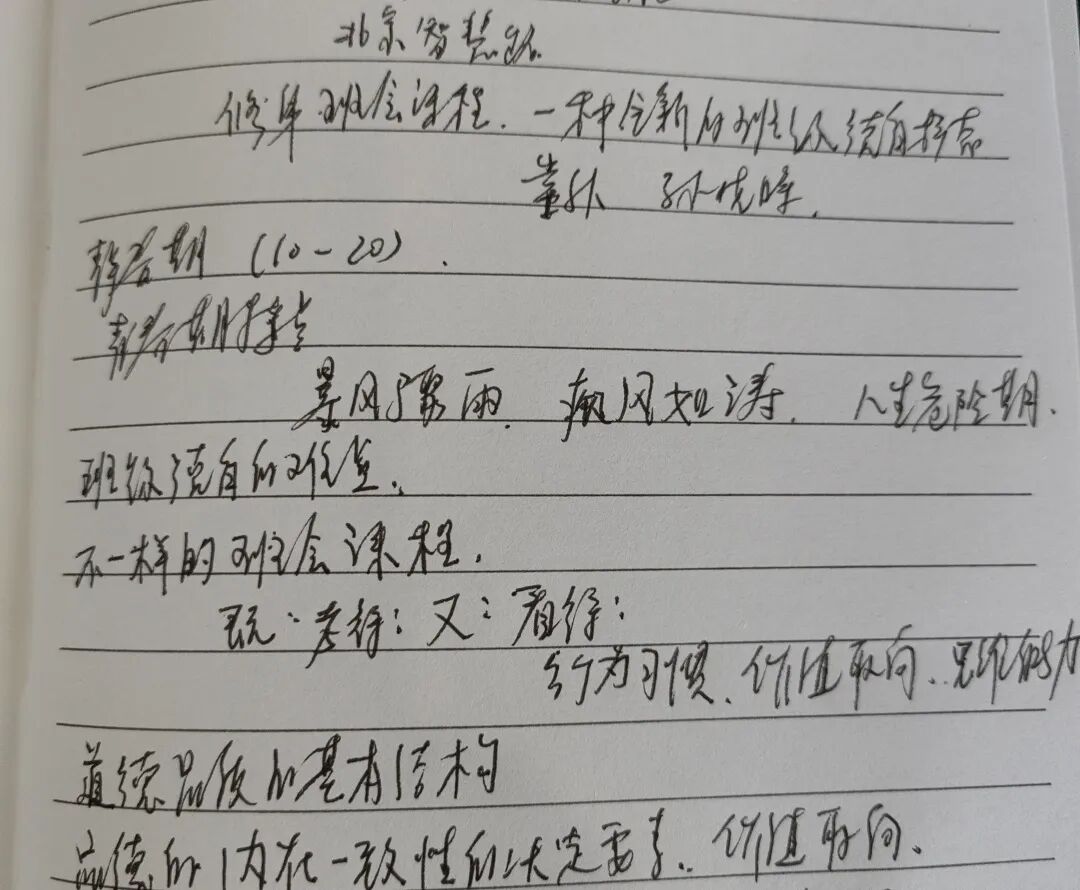 北京智慧
修身班会课程.一种全新的班级德育探索
孙晓峰.
青春期 (10-20).
青春期特点
暴风骤雨. 人生危险期.
班级德育的难点.
不一样的班会课程.
既: 考得: 又: 看得:
行为习惯、价值取向、思维能力
道德品质的基本结构
品德的内在一致性的决定要素. 价值取向.